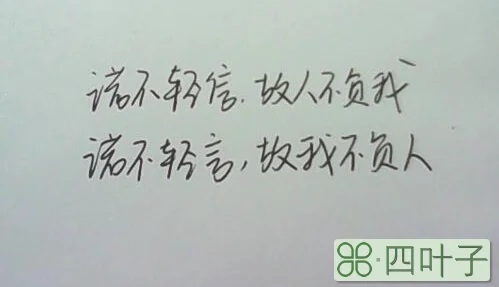 诺不轻信.故人不负我
诺不轻言,故我不负人
⌘·四叶子